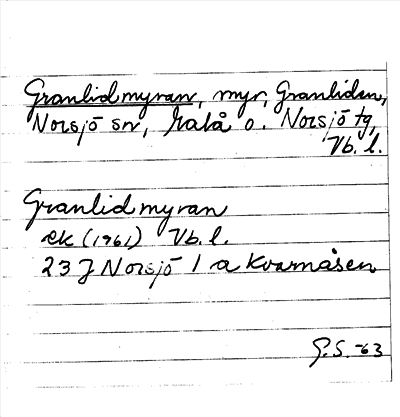 Granlidmyran, myr, Granliden,
Norsjö sn, Malå o. Norsjö tg,
Vb. l.
Granlidmyran
ek (1961) Vb. l.
23 J Norsjö 1 a Kvarnåsen
G. S. -63